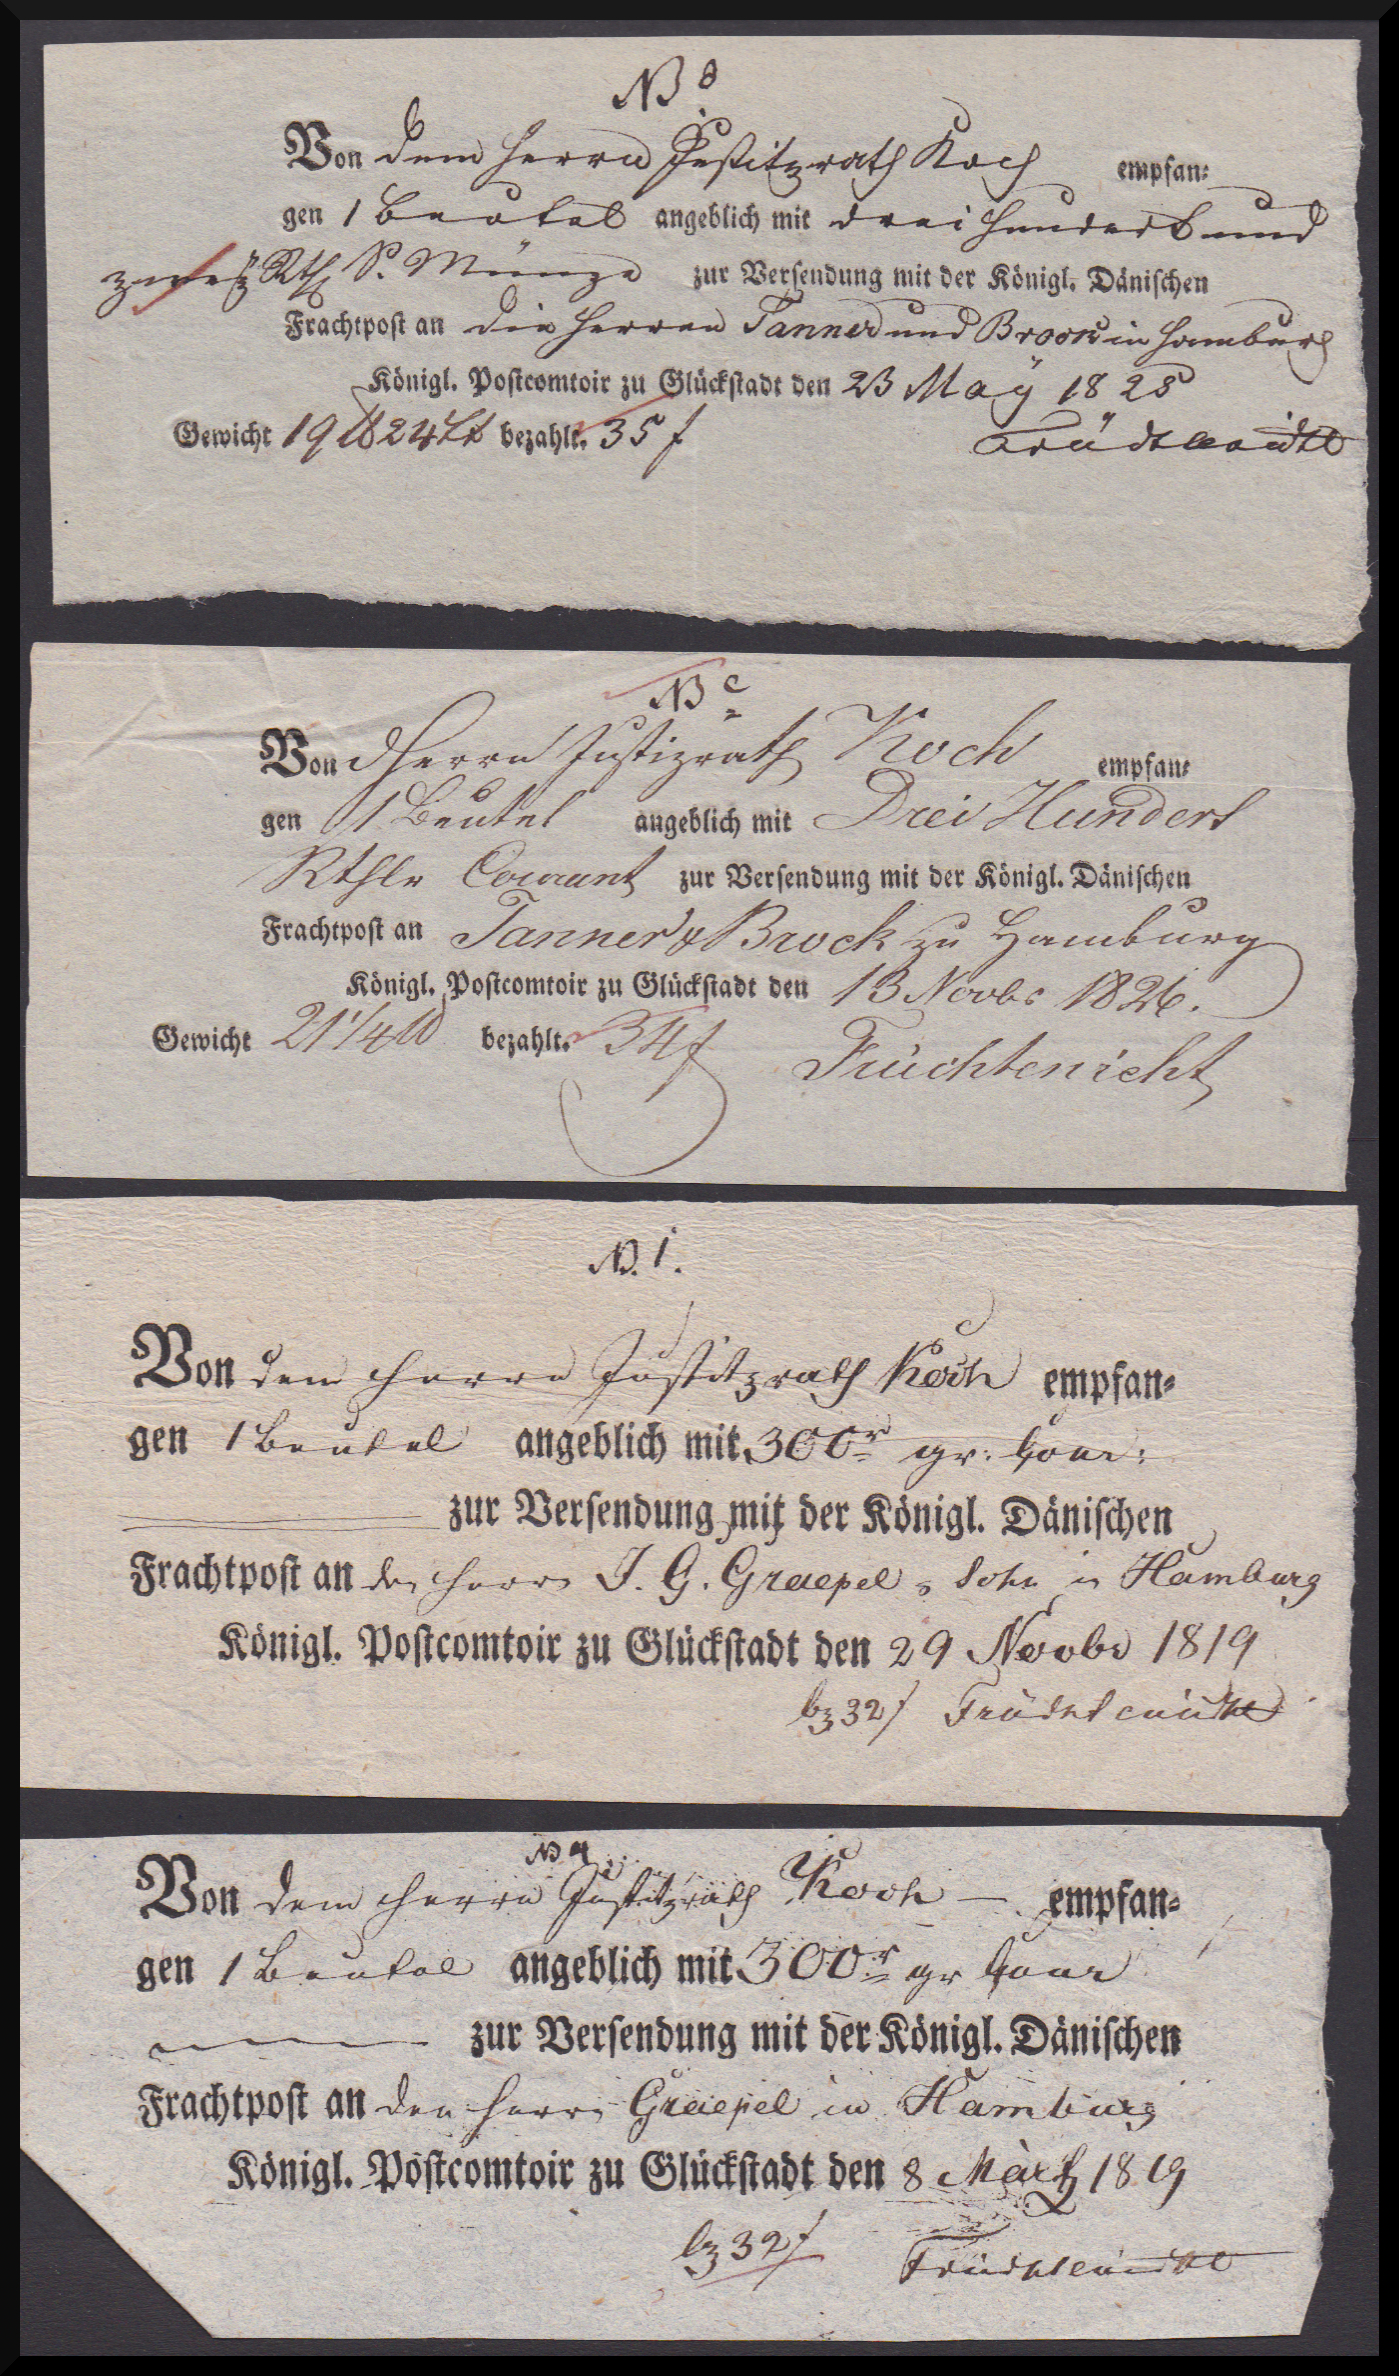 N 8
Von dem Herrn Justitzrath Koch empfan-
gen 1 Beutel angeblich mit drei hundert und
zwey Rth S. Münze zur Versendung mit der Königl. Dänischen
Frachtpost an die Herren Tanner und Brock in Hamburg
Königl. Postcomtoir zu Glückstadt den 23 May 1825
Gewicht 19 ℔ 24 Lt bezahlt. 35 ß
Früchtenicht
N c
Von d Herrn Justizrath Koch empfan-
gen 1 Beutel angeblich mit Drei Hundert
Rthlr Courant zur Versendung mit der Königl. Dänischen
Frachtpost an Tanner & Brock zu Hamburg
Königl. Postcomtoir zu Glückstadt den 13 Novbr 1826.
Gewicht 21 1/4 ℔ bezahlt. 34 ß
Früchtenicht
N. 1.
Von dem Herrn Justitzrath Koch empfan-
gen 1 Beutel angeblich mit 300 r gr: Cour:
zur Versendung mit der Königl. Dänischen
Frachtpost an den Herrn J. G. Graepel & Sohn in Hamburg
Königl. Postcomtoir zu Glückstadt den 29 Novbr 1819
bz 32 ß Früchtenicht
N 4
Von dem Herrn Justitzrath Koch empfan-
gen 1 Beutel angeblich mit 300 r gr Cour
zur Versendung mit der Königl. Dänischen
Frachtpost an den Herrn Graepel in Hamburg
Königl. Postcomtoir zu Glückstadt den 8 Märtz 1819
bz 32 ß Früchtenicht